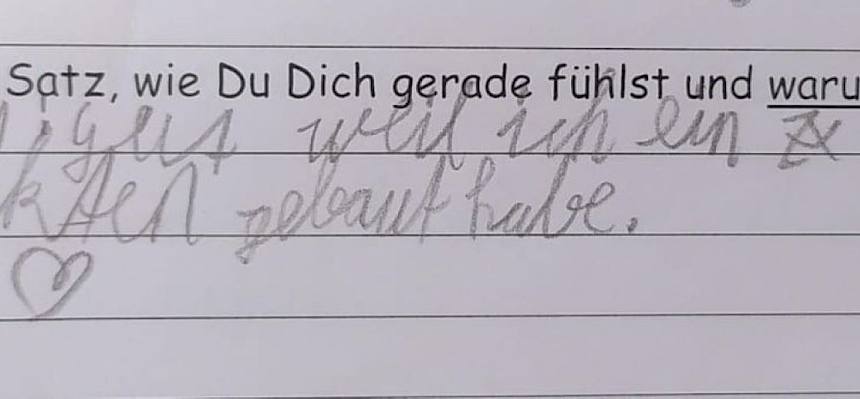 Satz, wie Du Dich gerade fühlst und waru
gut weil ich ein
gebaut habe.